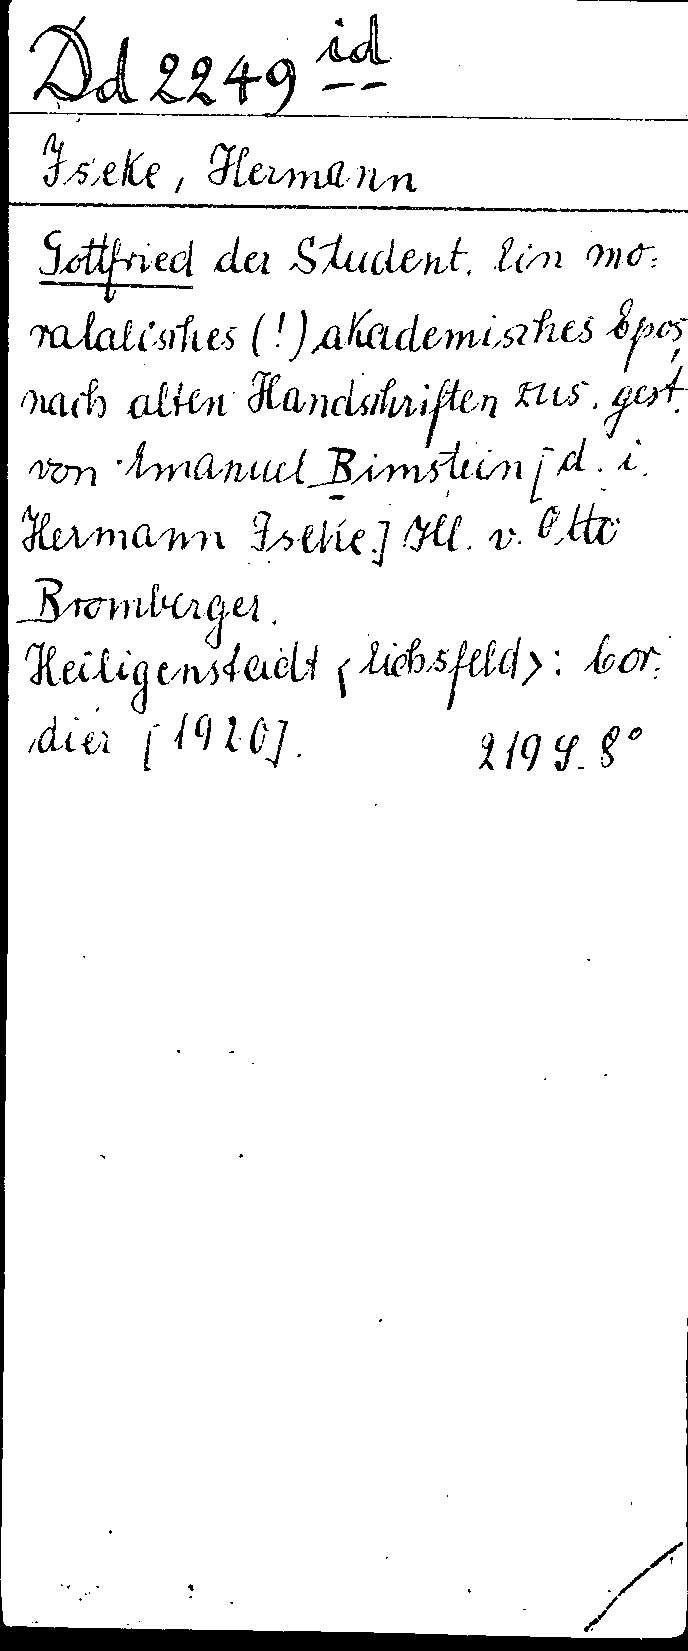 Dd 2249 id
Iseke, Hermann
Gottfried der Student. Ein mo-
ralalisches (!) akademisches Epos,
nach alten Handschriften zus. gest.
von Emanuel Bimstein [d. i.
Hermann Iseke.] Ill. v. Otto
Bromberger.
Heiligenstadt <Eichsfeld>: Cor-
dier [1920]. 219 S. 8°